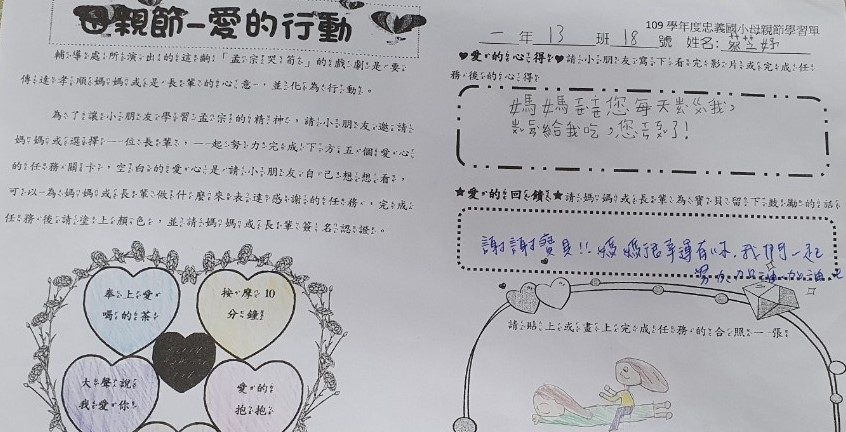 母親節-愛的行動
輔導處所演出的這齣「孟宗哭筍」的戲劇是要
傳達孝順媽媽或是長輩的心意,並化為行動。
為了讓小朋友學習孟宗的精神,請小朋友邀請
媽媽或選擇一位長輩,一起努力完成下方五個愛心
的任務關卡,空白的愛心請小朋友自己想想看,
可以為媽媽或長輩做什麼來表達感謝的任務,完成
任務後請塗上顏色,並請媽媽或長輩簽名認證。
奉上愛
喝的茶
按摩 10
分鐘
大聲說
我愛你
愛的
抱抱
109 學年度忠義國小母親節學習單
一年 13 班 18 號 姓名:蔡芝妤
♥愛的心得♥請小朋友寫下看完影片或完成任
務後的心得
媽媽謝謝您每天ㄓㄨˇ
給我吃,您
★愛的回饋★請媽媽或長輩為寶貝留下鼓勵的話語
謝謝寶貝!!媽媽很幸運有妳.我們一起
請貼上或畫上完成任務的合照一張